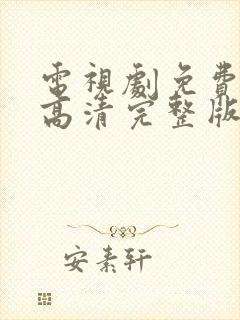 電視劇免費
高清完整版
安素轩